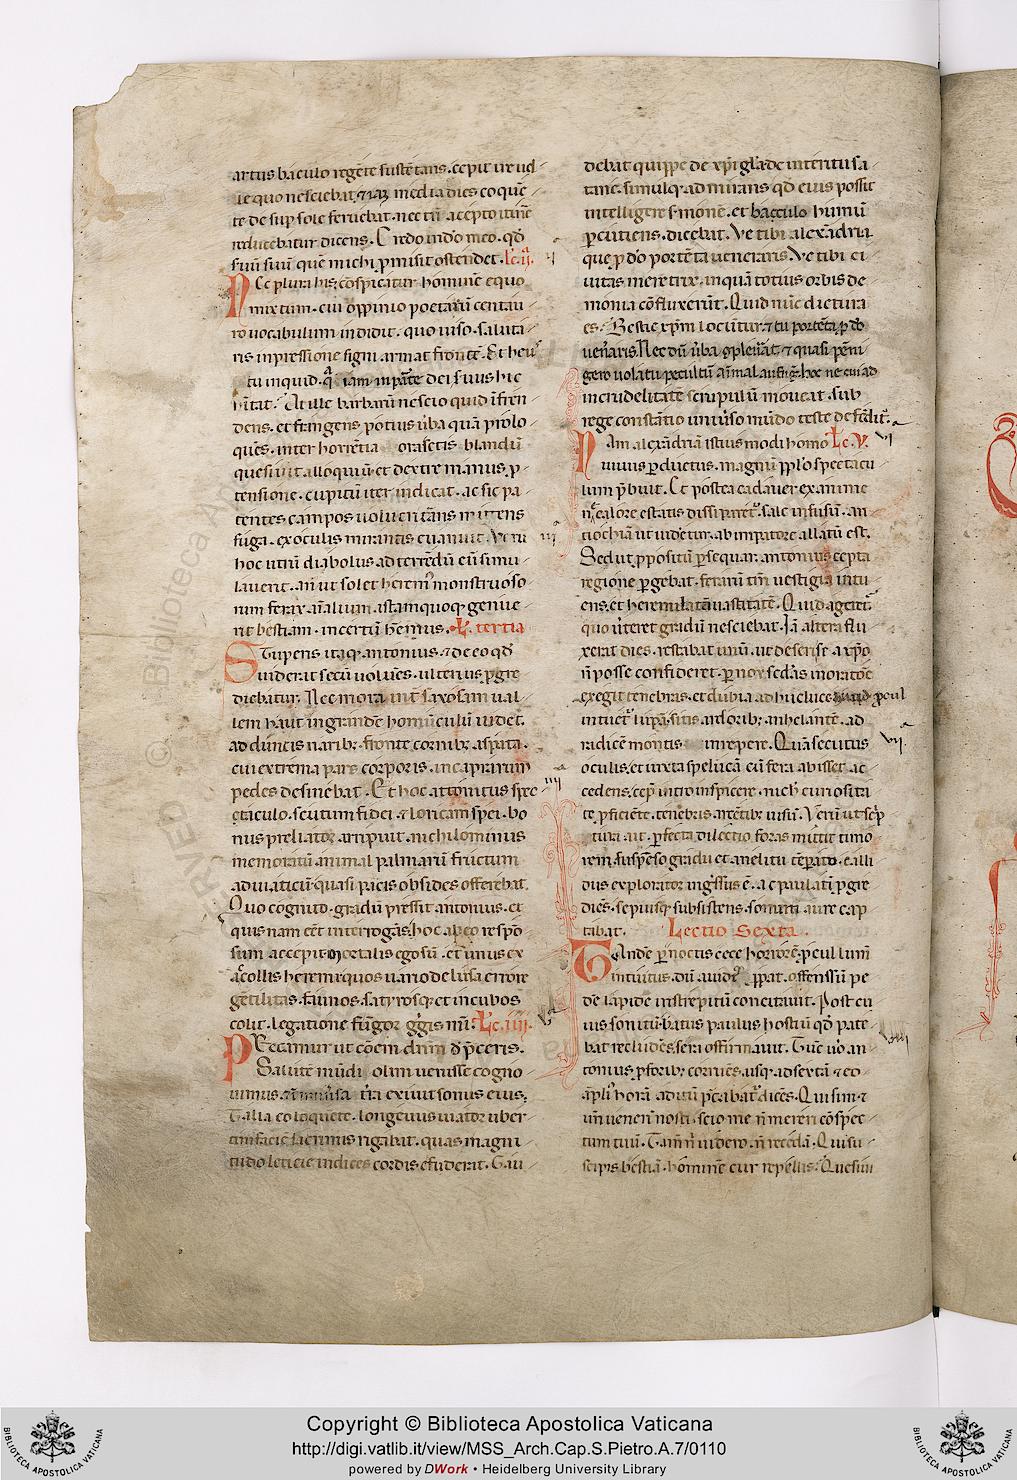 artus baculo regēte sustētans. cepit ire uel
le quo nesciebat. ⁊ iaꝫ media dies coquē
te de sup sole feruebat. nec tn̄ accepto itinē
reducebatur dicens. Credo in do meo. qđ
suū suū quē michi p̄misit ostendet. Lc. ij.
Nec plura his. cōspicatur hominē equo
mixtum. cui oppinio poetarū centau
ro uocabulum indidit. quo uiso. saluta
ris inpressione signi armat frontē. Et heu
tu inquid. q̄ iam inparte dei seruus hic
hītat. At ille barbarū nescio quid ifren
dens. et frangens potius ūba quā prolo
quēs. inter horrētia ora setis. blandū
quesiuit alloquiū. et dextre manus. p
tensione. cupitū iter indicat. ac sic pa
tentes campos uolucri trāns mittens
fuga. ex oculis mirantis euanuit. Verū
hoc utrū diabolus ad terrēdū eū simu
lauerit. an ut solet herem᾽ monstruoso
rum ferax aīalium. istam quoqꝫ genue
rit bestiam. incertū hēmus. Lc. tertia
Stupens itaqꝫ antonius. ⁊ de eo qđ
uiderat secū uoluēs. ulterius p̱gre
diebatur. Nec mora int̄ saxosam ual
lem haut ingrandē homūculū uidet.
aduncis naribꝫ. fronte cornibꝫ aspata.
cui extrema pars corporis. in caprarum
pedes desinebat. Et hoc attonitus spec
ctaculo. scutum fidei. ⁊ loricam spei. bo
nus preliator arripuit. nichilominus
memoratū animal palmarū fructum
ad uiaticū quasi pacis obsides offerebat.
Quo cognito. gradū pressit antonius. et
quis nam eēt interrogās. hoc ab eo respō
sum accepit. Mortalis ego sū. et unus ex
accollis heremi. quos uario delusa errore
gētilitas. faunos. satyrosqꝫ. et incubos
colit. legatione fūgor g̓gis mī. Lc. iiii.
Precamur ut cōem dnm d̄p̄ceris.
Salutē mūdi olim uenisse cogno
uimus. ⁊ in uniūsa t̄ra exiuit sonus eius.
Talia eo loquēte. longeuus uiator uber
tim faciē lacrimis rigabat. quas magni
tudo leticie indices cordis efuderat. Gau
debat quippe de xp̄i gl̄a. de interitu sa
tane. simulqꝫ admirans qđ eius possit
intelligere s̄monē. et bacculo humū
p̱cutiens. dicebat. Ve tibi alexādria
que p do portēta ueneraris. Ve tibi ci
uitas meretrix. in quā totius orbis de
monia cōfluxerūt. Quid nūc dictura
es. Bestie xp̄m locūtur. ⁊ tu portēta p do
uen̄aris. Nec dū ūba cōpleu̓at. ⁊ quasi pēni
gero uolatu petultū aīmal aufugit. hoc ne cui ad
incrudelitatē scrupulū moueat. sub
rege constātio uniūso mūdo teste defēdit᷑.
Nam alexādriā istius modi homo Lc. v.
uiuus p̱ductus. magnū pp̄lo spectacu
lum p̄buit. Et postea cadauer exanime
n̄ calore estatis dissiparet᷑. sale infusū. an
tiochiā ut uidetur. ab imp̱atore allatū est.
Sed ut p̱positū p̱sequar. antonius cepta
regione p̱gebat. ferarū tm̄ uestigia intu
ens. et heremi latā uastitatē. Quid ageret
quo ūteret gradū nesciebat. Iā altera flu
xerat dies. restabat unū. ut deserise a xp̄o
n̄ posse confideret. p̱ nox sedās in oratōe
exegit tenebras. et dubia adhuc luce haud p̱cul
intuet᷑ lupā. sitis ardoribꝫ anhelantē. ad
radicē montis inrepere. Quā secutus
oculis. et iuxta speluncā cū fera abisset ac
cedens. cep̄ intro inspicere. nichꝉ curiosita
te p̱ficiēte. tenebris arcētibꝫ uisū. Verū ut sc̄p
tura ait. p̱fecta dilectio foras mittit timo
rem. suspēso gradu et anelitu tēperato. calli
dus explorator ing̓ssus ē. ac paulatī p̱gre
diēs. sepiusqꝫ subsistens. sonum aure cap
tabat. Lectio Sexta.
Tandē p̱ noctis cece horrorē. p̱cul lumē
intuitus. dū auidi᷑ p̱p̱at. offensū pe
dē lapide in strepitū concitauit. Post cu
ius sonitū. beatus paulus hostiū qđ pate
bat recludēs. sera offirmauit. Tunc uō an
tonius. p̱ foribꝫ corruēs. usqꝫ ad sextā ⁊ eo
āpliꝰ horā. aditū p̄cabat᷑ dicēs. Qui sim ⁊
un̄ uenerī nosti. scio me n̄ mereri cōspec
tum tuū. Tamn̄ n̄ uidero. n̄ recedā. Qui su
scipis bestiā. hominē cur repellis. Quesiui
Copyright © Biblioteca Apostolica Vaticana
http://digi.vatlib.it/view/MSS_Arch.Cap.S.Pietro.A.7/0110
powered by DWork • Heidelberg University Library